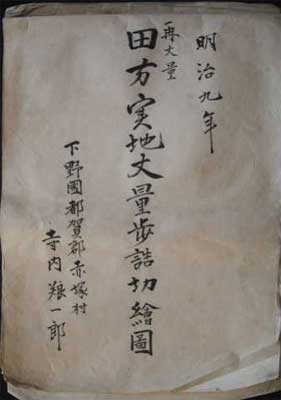 明治九年
再丈量
田方実地丈量歩詰切繪圖
下野國都賀郡赤塚村
寺内㫰一郎